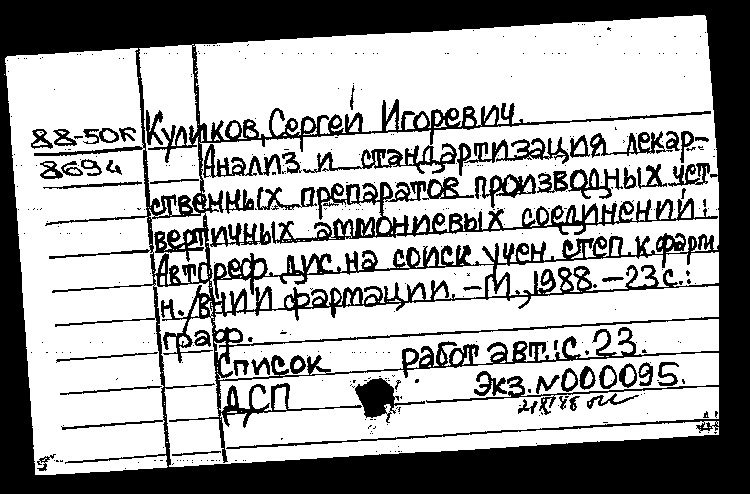 88-50к
8694
Куликов, Сергей Игоревич.
Анализ и стандартизация лекар-
ственных препаратов производных чет-
вертичных аммониевых соединений:
Автореф. дис. на соиск. учен. степ. к. фарм.
н. / ВНИИ фармации. – М., 1988. – 23 с.:
граф.
Список работ авт.: с. 23.
ДСП Экз. N000095.